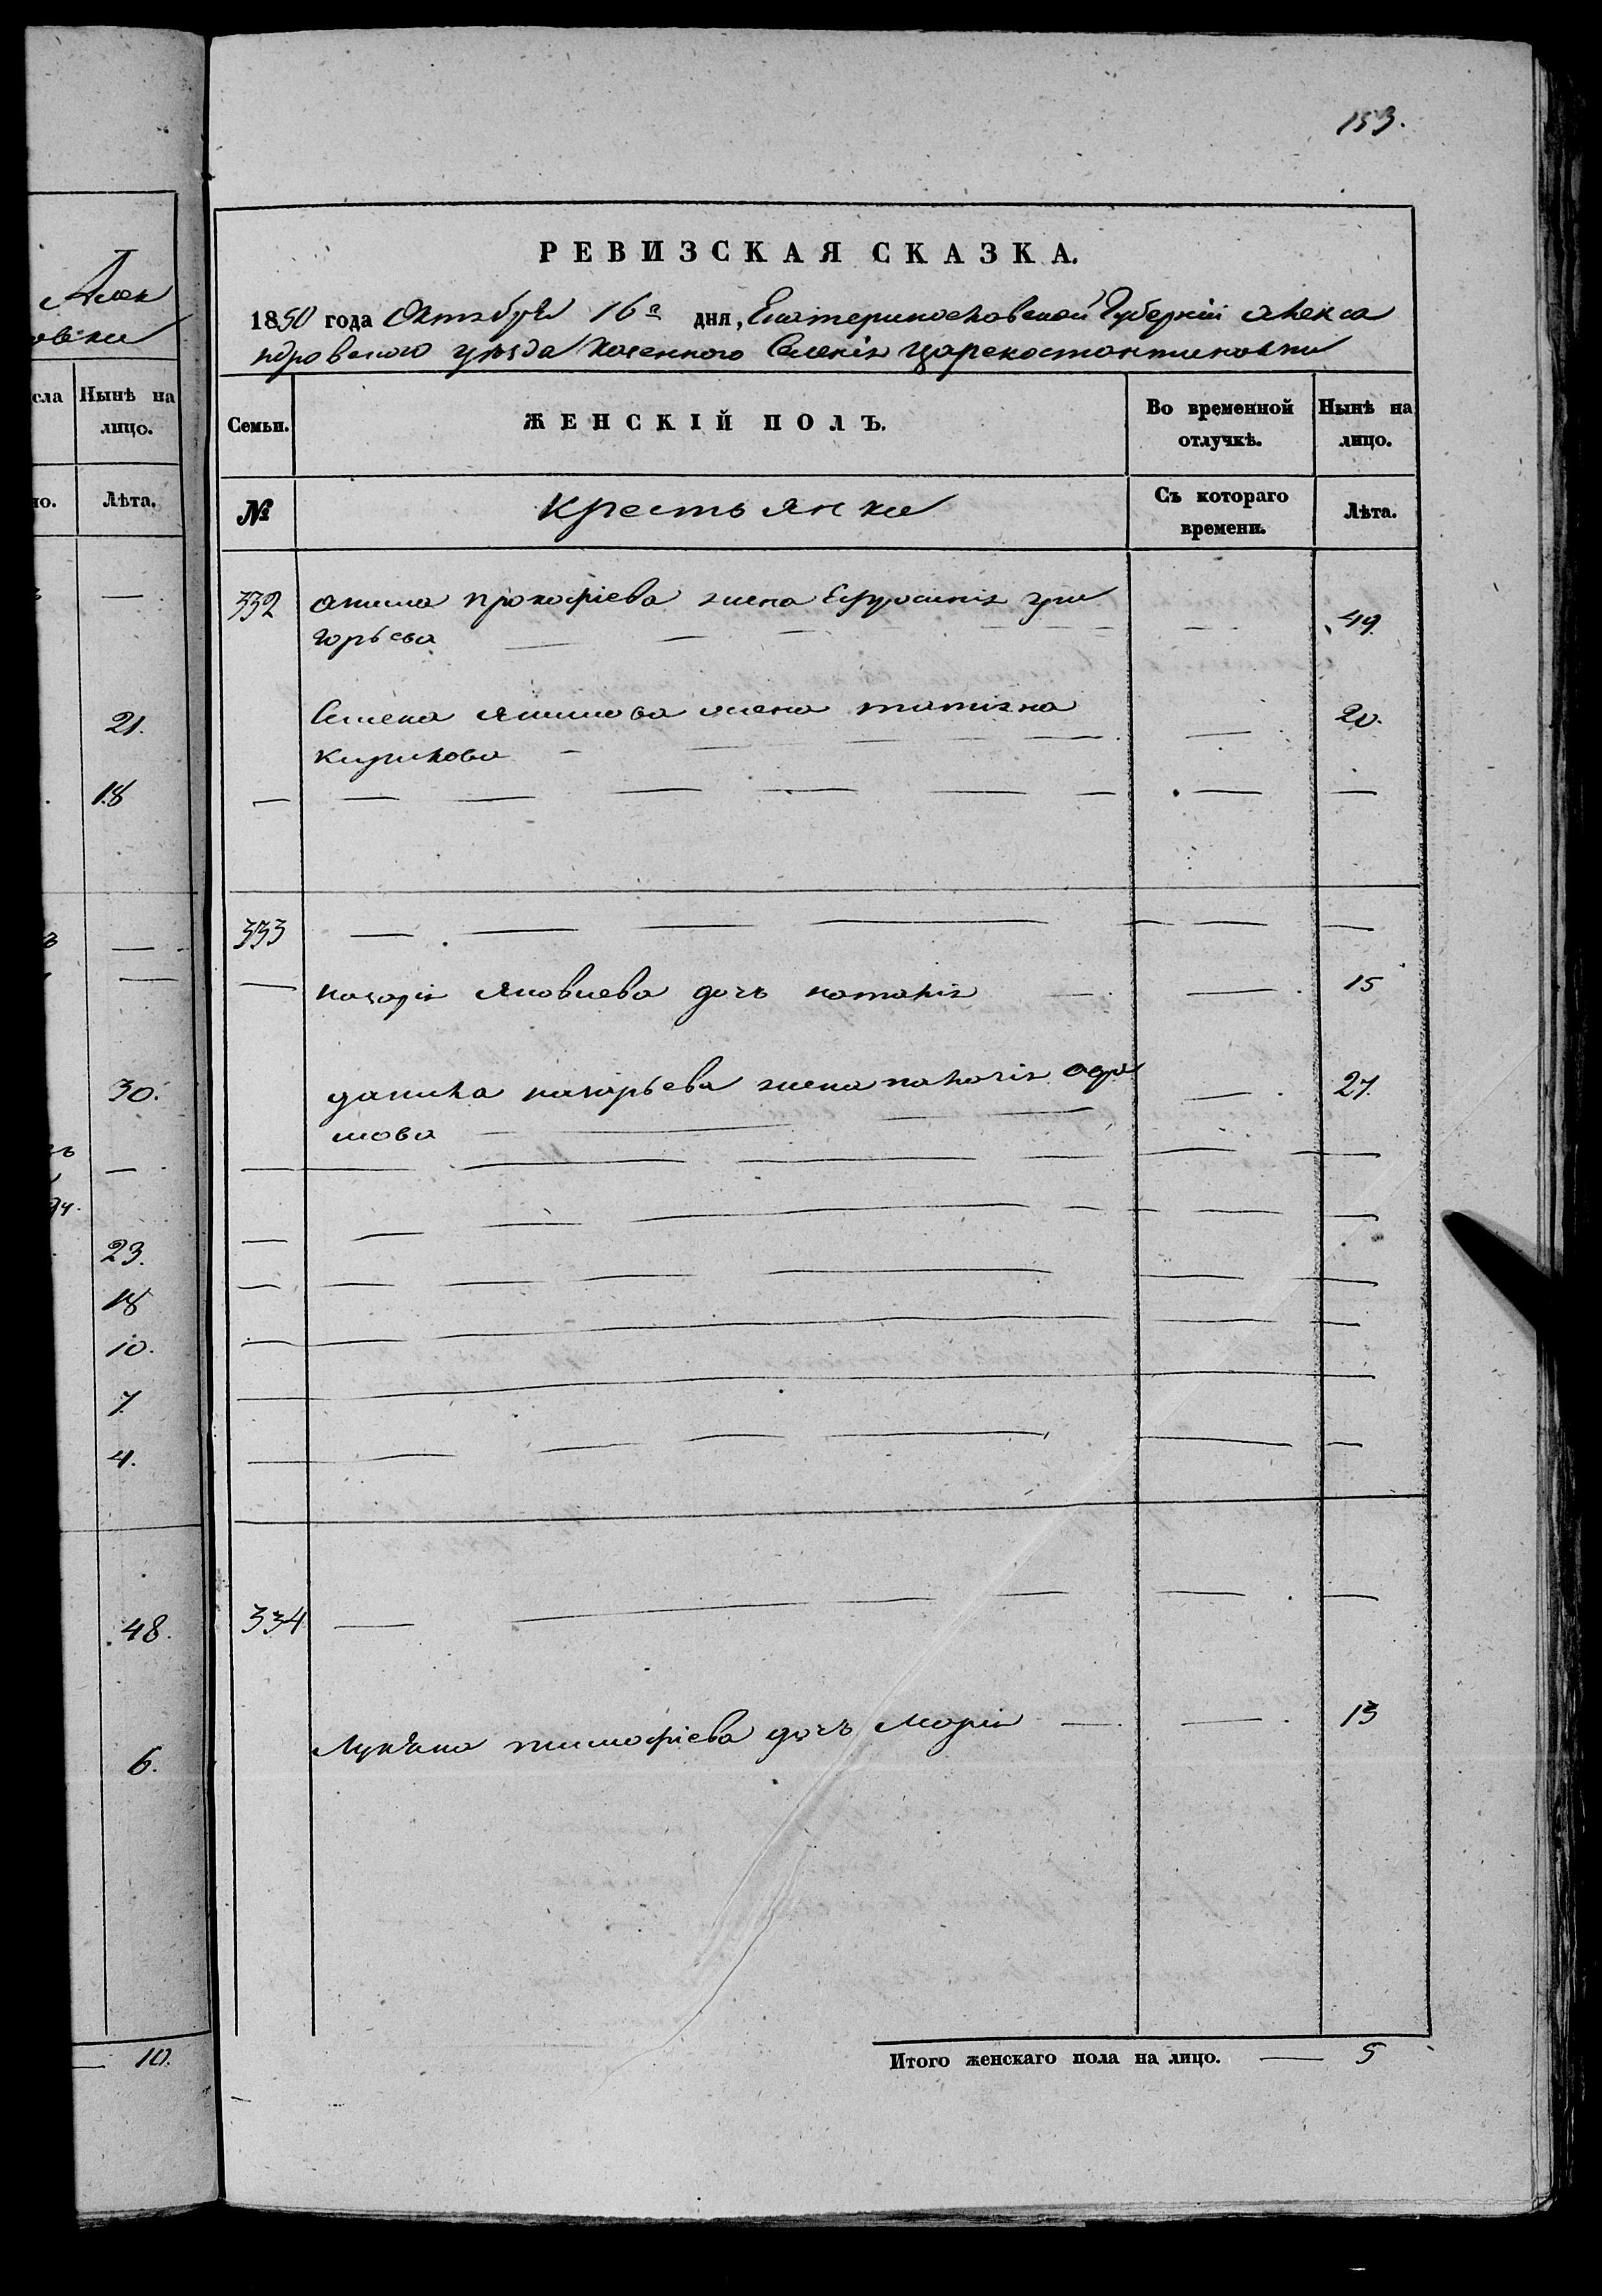 153.
Алек
овки
сла
Нынѣ на
лицо.
но.
Лѣта.
—
21.
18
—
—
30.
—
23.
18
10.
7.
4.
48.
6.
10.
РЕВИЗСКАЯ СКАЗКА.
1850 года Октября 16го дня, Екатеринославской Губерніи Алекса
ндровского уѣзда казенного Селенія Царекостантиновки
Семьи.
ЖЕНСКІЙ ПОЛЪ.
Во временной
отлучкѣ.
Нынѣ на
лицо.
№
Крестьянки
Съ котораго
времени.
Лѣта.
332 Якима Прокофіева жена Ефросинія Гри
горьева — 49.
Семена Якимова жена Татіяна
Кирилова — 20.
333 —
Назарія Яковлева дочь Наталія — 15
Данила Назарьева жена Палагія
— 27.
334 —
Лукяна Тимофіева дочь Марія — 13
Итого женскаго пола на лицо. — 5